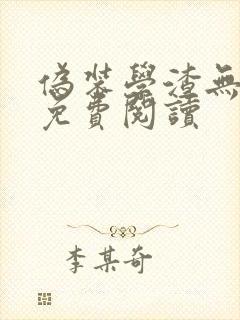 偽裝學渣無
免費閱讀
李某奇